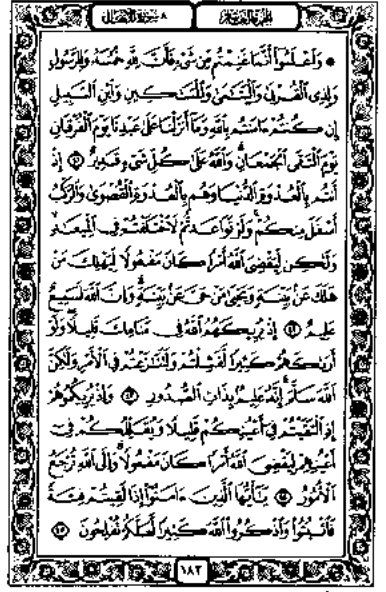 الجزء العاشر ٨ سورة الأنفال
۞ وَٱعْلَمُوٓا۟ أَنَّمَا غَنِمْتُم مِّن شَىْءٍ فَأَنَّ لِلَّهِ خُمُسَهُۥ وَلِلرَّسُولِ
وَلِذِى ٱلْقُرْبَىٰ وَٱلْيَتَـٰمَىٰ وَٱلْمَسَـٰكِينِ وَٱبْنِ ٱلسَّبِيلِ
إِن كُنتُمْ ءَامَنتُم بِٱللَّهِ وَمَآ أَنزَلْنَا عَلَىٰ عَبْدِنَا يَوْمَ ٱلْفُرْقَانِ
يَوْمَ ٱلْتَقَى ٱلْجَمْعَانِ ۗ وَٱللَّهُ عَلَىٰ كُلِّ شَىْءٍ قَدِيرٌ ٤١ إِذْ
أَنتُم بِٱلْعُدْوَةِ ٱلدُّنْيَا وَهُم بِٱلْعُدْوَةِ ٱلْقُصْوَىٰ وَٱلرَّكْبُ
أَسْفَلَ مِنكُمْ ۚ وَلَوْ تَوَاعَدتُّمْ لَٱخْتَلَفْتُمْ فِى ٱلْمِيعَـٰدِ ۙ
وَلَـٰكِن لِّيَقْضِىَ ٱللَّهُ أَمْرًا كَانَ مَفْعُولًا لِّيَهْلِكَ مَنْ
هَلَكَ عَنۢ بَيِّنَةٍ وَيَحْيَىٰ مَنْ حَىَّ عَنۢ بَيِّنَةٍ ۗ وَإِنَّ ٱللَّهَ لَسَمِيعٌ
عَلِيمٌ ٤٢ إِذْ يُرِيكَهُمُ ٱللَّهُ فِى مَنَامِكَ قَلِيلًا ۖ وَلَوْ
أَرَىٰكَهُمْ كَثِيرًا لَّفَشِلْتُمْ وَلَتَنَـٰزَعْتُمْ فِى ٱلْأَمْرِ وَلَـٰكِنَّ
ٱللَّهَ سَلَّمَ ۗ إِنَّهُۥ عَلِيمٌۢ بِذَاتِ ٱلصُّدُورِ ٤٣ وَإِذْ يُرِيكُمُوهُمْ
إِذِ ٱلْتَقَيْتُمْ فِىٓ أَعْيُنِكُمْ قَلِيلًا وَيُقَلِّلُكُمْ فِىٓ
أَعْيُنِهِمْ لِيَقْضِىَ ٱللَّهُ أَمْرًا كَانَ مَفْعُولًا ۗ وَإِلَى ٱللَّهِ تُرْجَعُ
ٱلْأُمُورُ ٤٤ يَـٰٓأَيُّهَا ٱلَّذِينَ ءَامَنُوٓا۟ إِذَا لَقِيتُمْ فِئَةً
فَٱثْبُتُوا۟ وَٱذْكُرُوا۟ ٱللَّهَ كَثِيرًا لَّعَلَّكُمْ تُفْلِحُونَ ٤٥
١٨٢